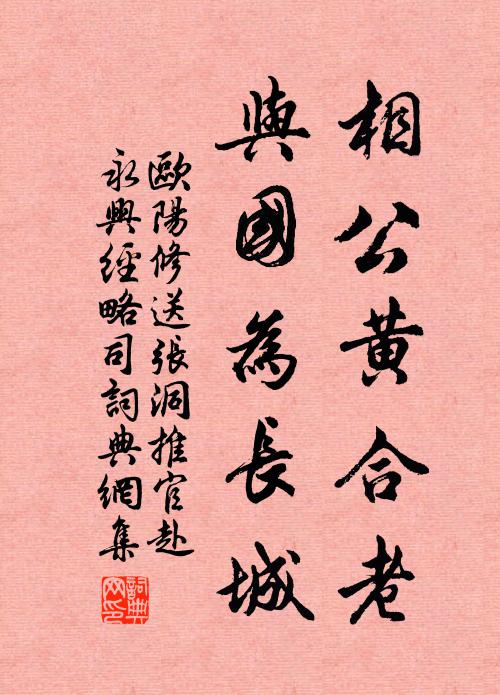 相公黄合老
與國為長城
歐陽修送張洞推官赴
永興經略司詞典網集
詞典